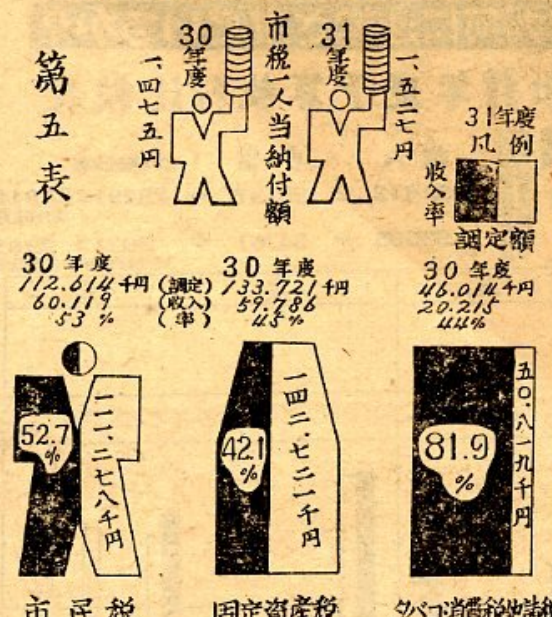 第五表
市税一人当納付額
31年度
一、五二七円
30年度
一、四七五円
31年度
凡例
収入率
調定額
30年度
112.614千円(調定)
60.119(収入)
53%(率)
30年度
133.721千円
59.786
45%
30年度
46.014千円
20.215
44%
52.7%
一一一、二七八千円
42.1%
一四二、七二一千円
81.9%
五〇、八一九千円
市民税
固定資産税
タバコ消費税